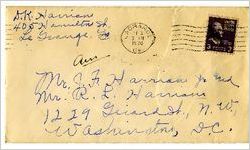 D.K. Harrison
405 Hamilton St.
La Grange, Ga
LAGRANGE
GA.
Mr. J. F. Harrison
Mr. R. L. Harrison
1229 Girard St., N.W.
Washington, D.C.